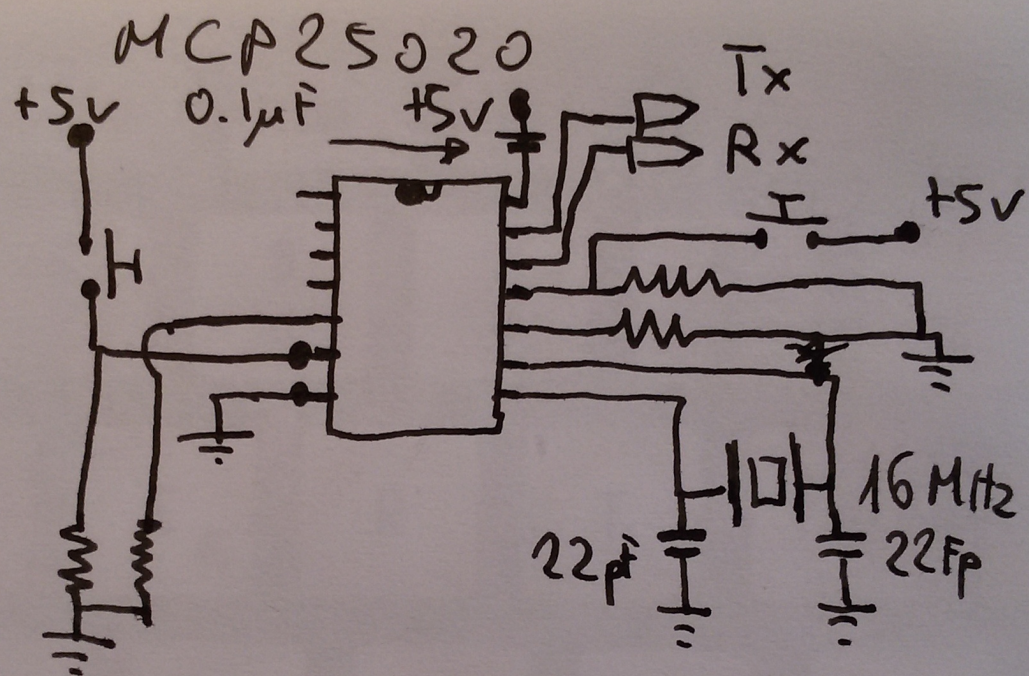 MCP25020
+5v 0.1µF +5v Tx
Rx
+5v
16MHz
22pF 22Fp